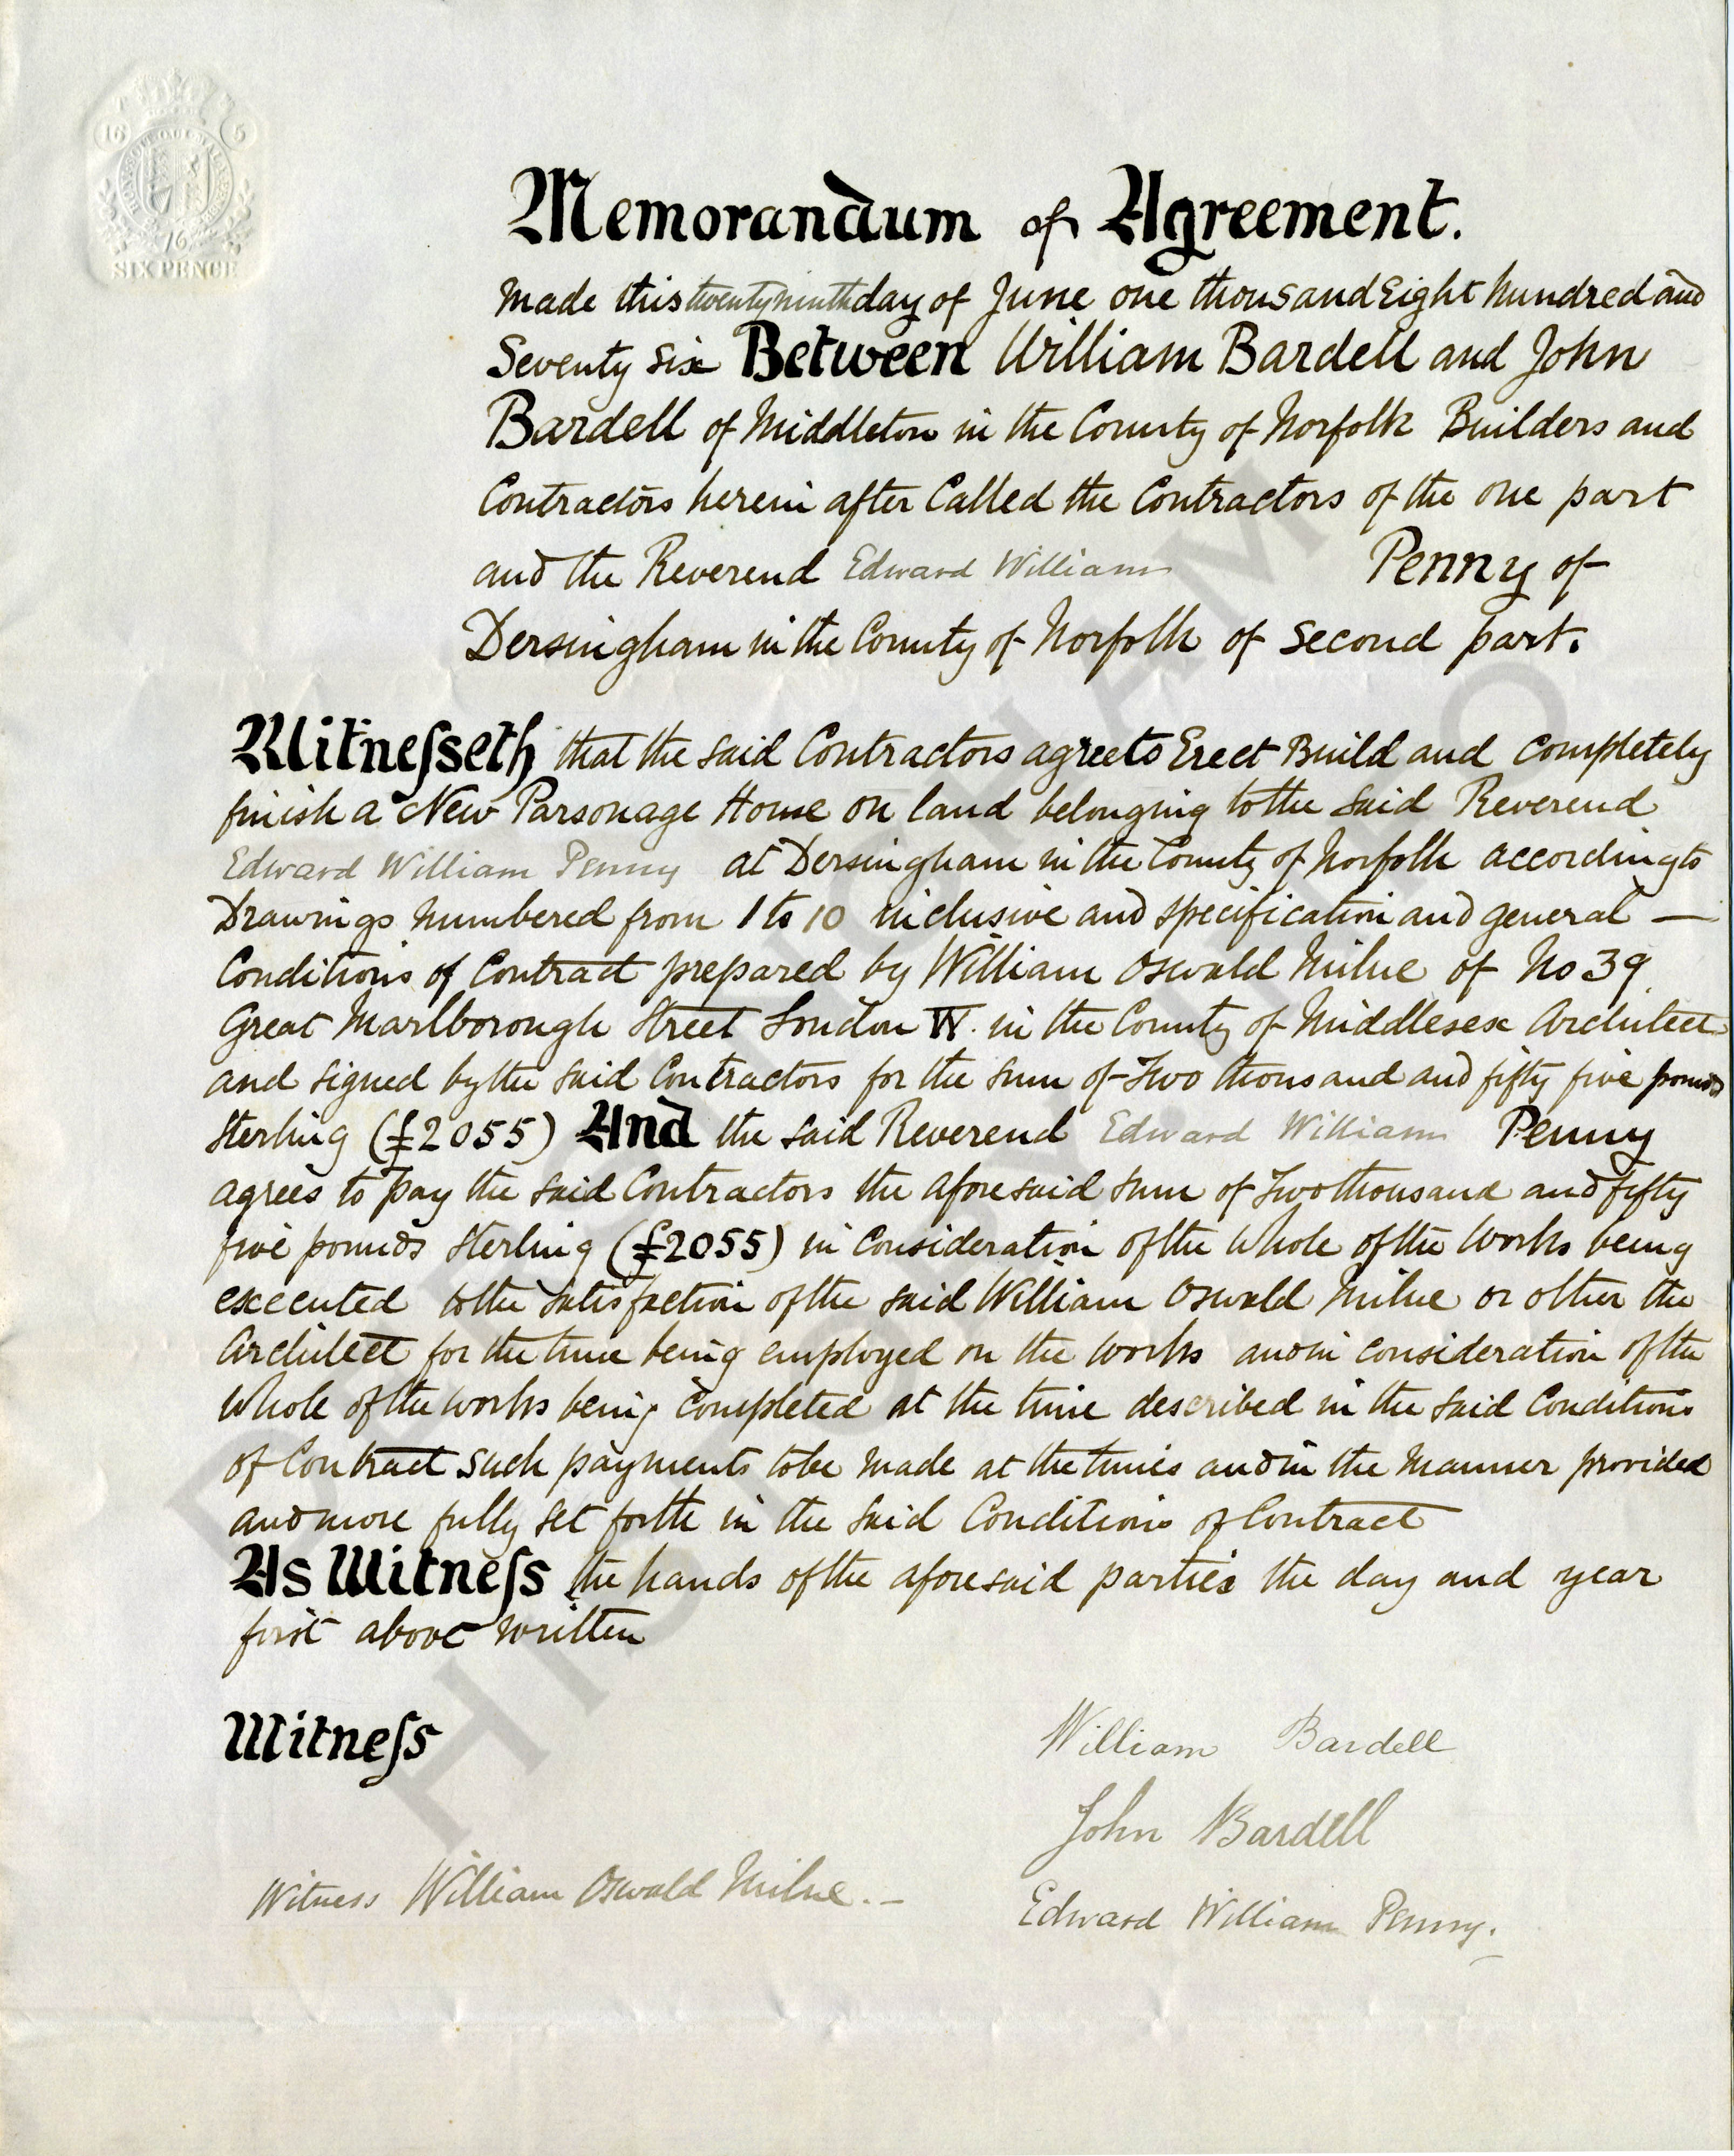 16 5
HONI SOIT QUI MAL Y PENSE
76
SIX PENCE
Memorandum of Agreement.
Made this twenty ninth day of June one thousand Eight hundred and
Seventy six Between William Bardell and John
Bardell of Middleton in the County of Norfolk Builders and
Contractors herein after Called the Contractors of the one part
and the Reverend Edward William Penny of
Dersingham in the County of Norfolk of second part.
Witnesseth that the said Contractors agree to Erect Build and completely
finish a New Parsonage House on land belonging to the said Reverend
Edward William Penny at Dersingham in the County of Norfolk according to
Drawings numbered from 1 to 10 inclusive and specification and general —
Conditions of Contract prepared by William Oswald Milne of No 39
Great Marlborough Street London W. in the County of Middlesex Architect
and signed by the said Contractors for the sum of Two thousand and fifty five pounds
Sterling (£2055) And the said Reverend Edward William Penny
agrees to pay the said Contractors the aforesaid sum of Two thousand and fifty
five pounds Sterling (£2055) in consideration of the whole of the works being
executed to the satisfaction of the said William Oswald Milne or other the
Architect for the time being employed on the works and in consideration of the
whole of the works being completed at the time described in the said Conditions
of Contract such payments to be made at the times and in the manner provided
and more fully set forth in the said Conditions of Contract
As Witness the hands of the aforesaid parties the day and year
first above written
Witness
William Bardell
John Bardell
Witness William Oswald Milne. —
Edward William Penny.